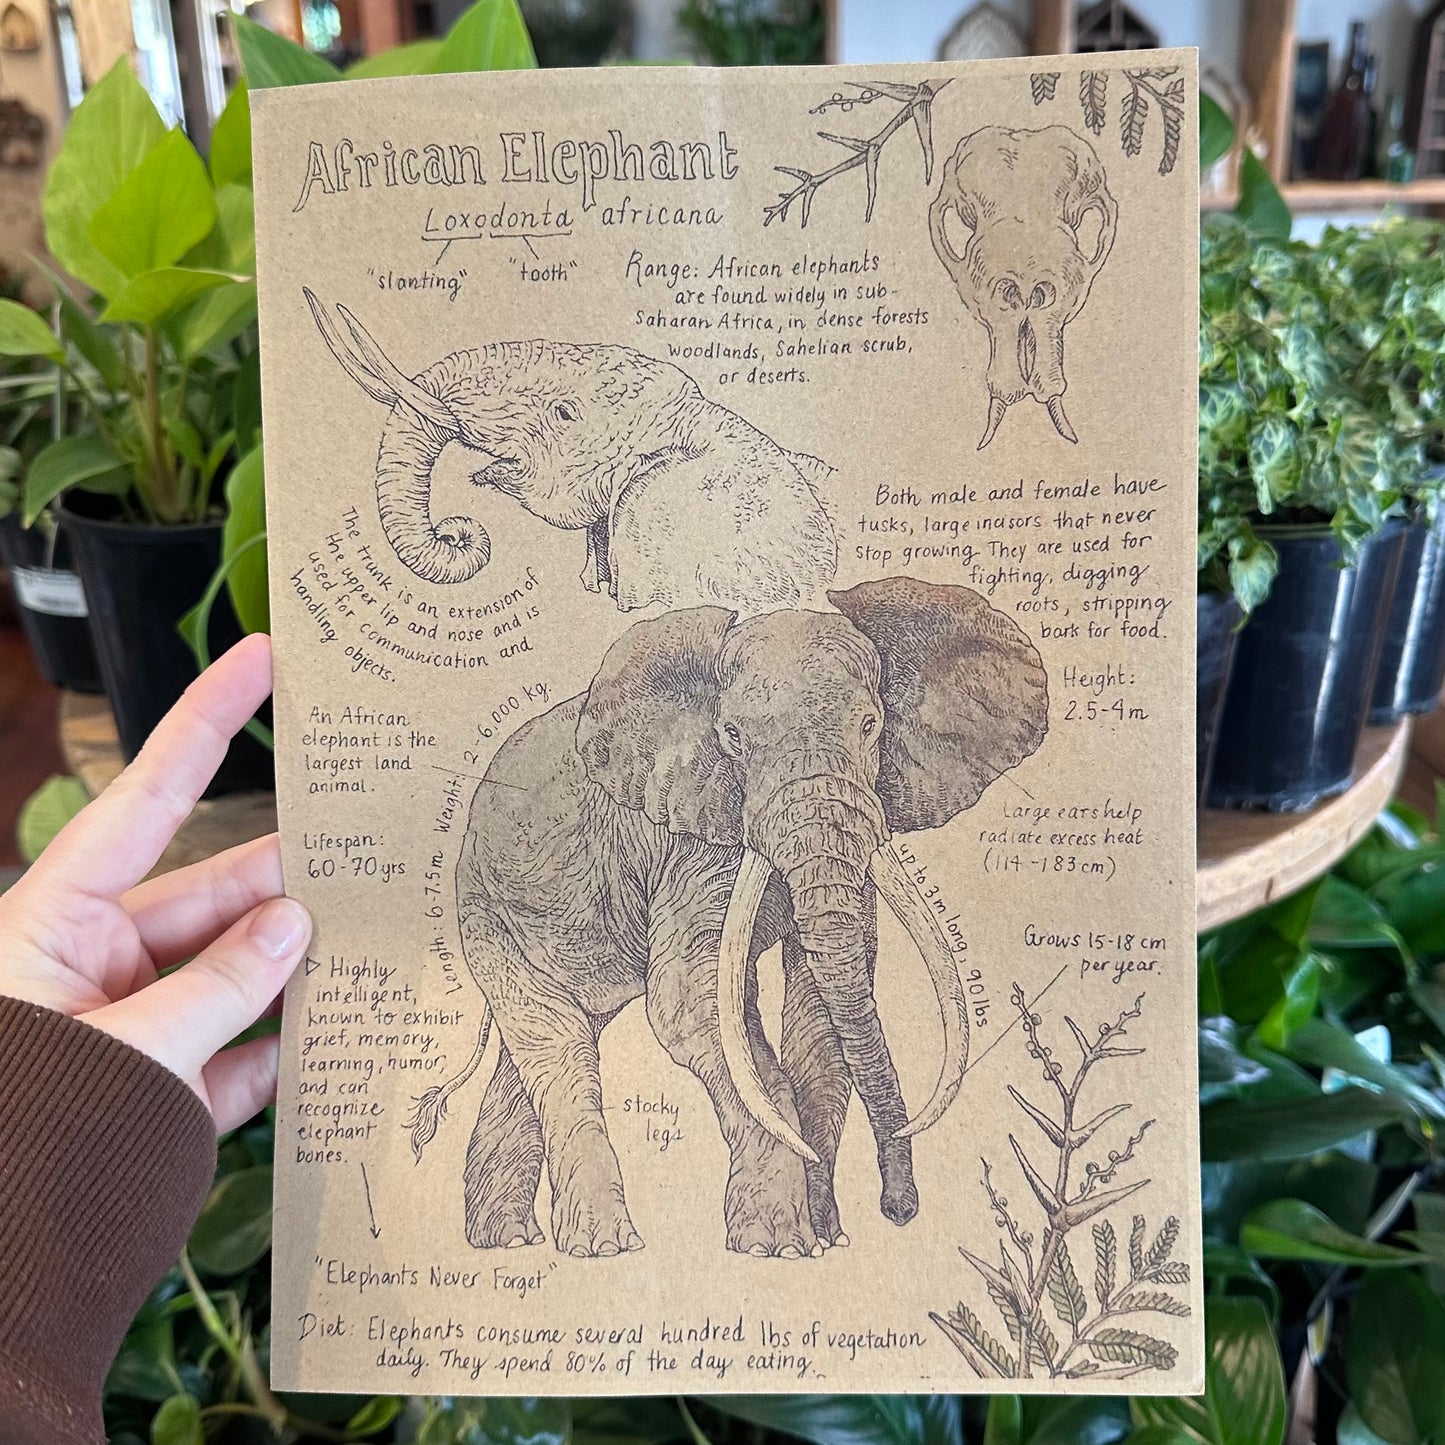 African Elephant
Loxodonta africana
"slanting"
"tooth"
Range: African elephants
are found widely in sub-
Saharan Africa, in dense forests
woodlands, Sahelian scrub,
or deserts.
Both male and female have
tusks, large incisors that never
stop growing. They are used for
fighting, digging
roots, stripping
bark for food.
The trunk is an extension of
the upper lip and nose and is
used for communication and
handling objects.
Height:
2.5-4m
An African
elephant is the
largest land
animal.
Length: 6-7.5m Weight: 2-6,000 kg.
Large ears help
radiate excess heat
(114-183cm)
Lifespan:
60-70yrs
up to 3m long, 90 lbs
Grows 15-18 cm
per year.
Highly
intelligent,
known to exhibit
grief, memory,
learning, humor,
and can
recognize
elephant
bones.
stocky
legs
"Elephants Never Forget"
Diet: Elephants consume several hundred lbs of vegetation
daily. They spend 80% of the day eating.